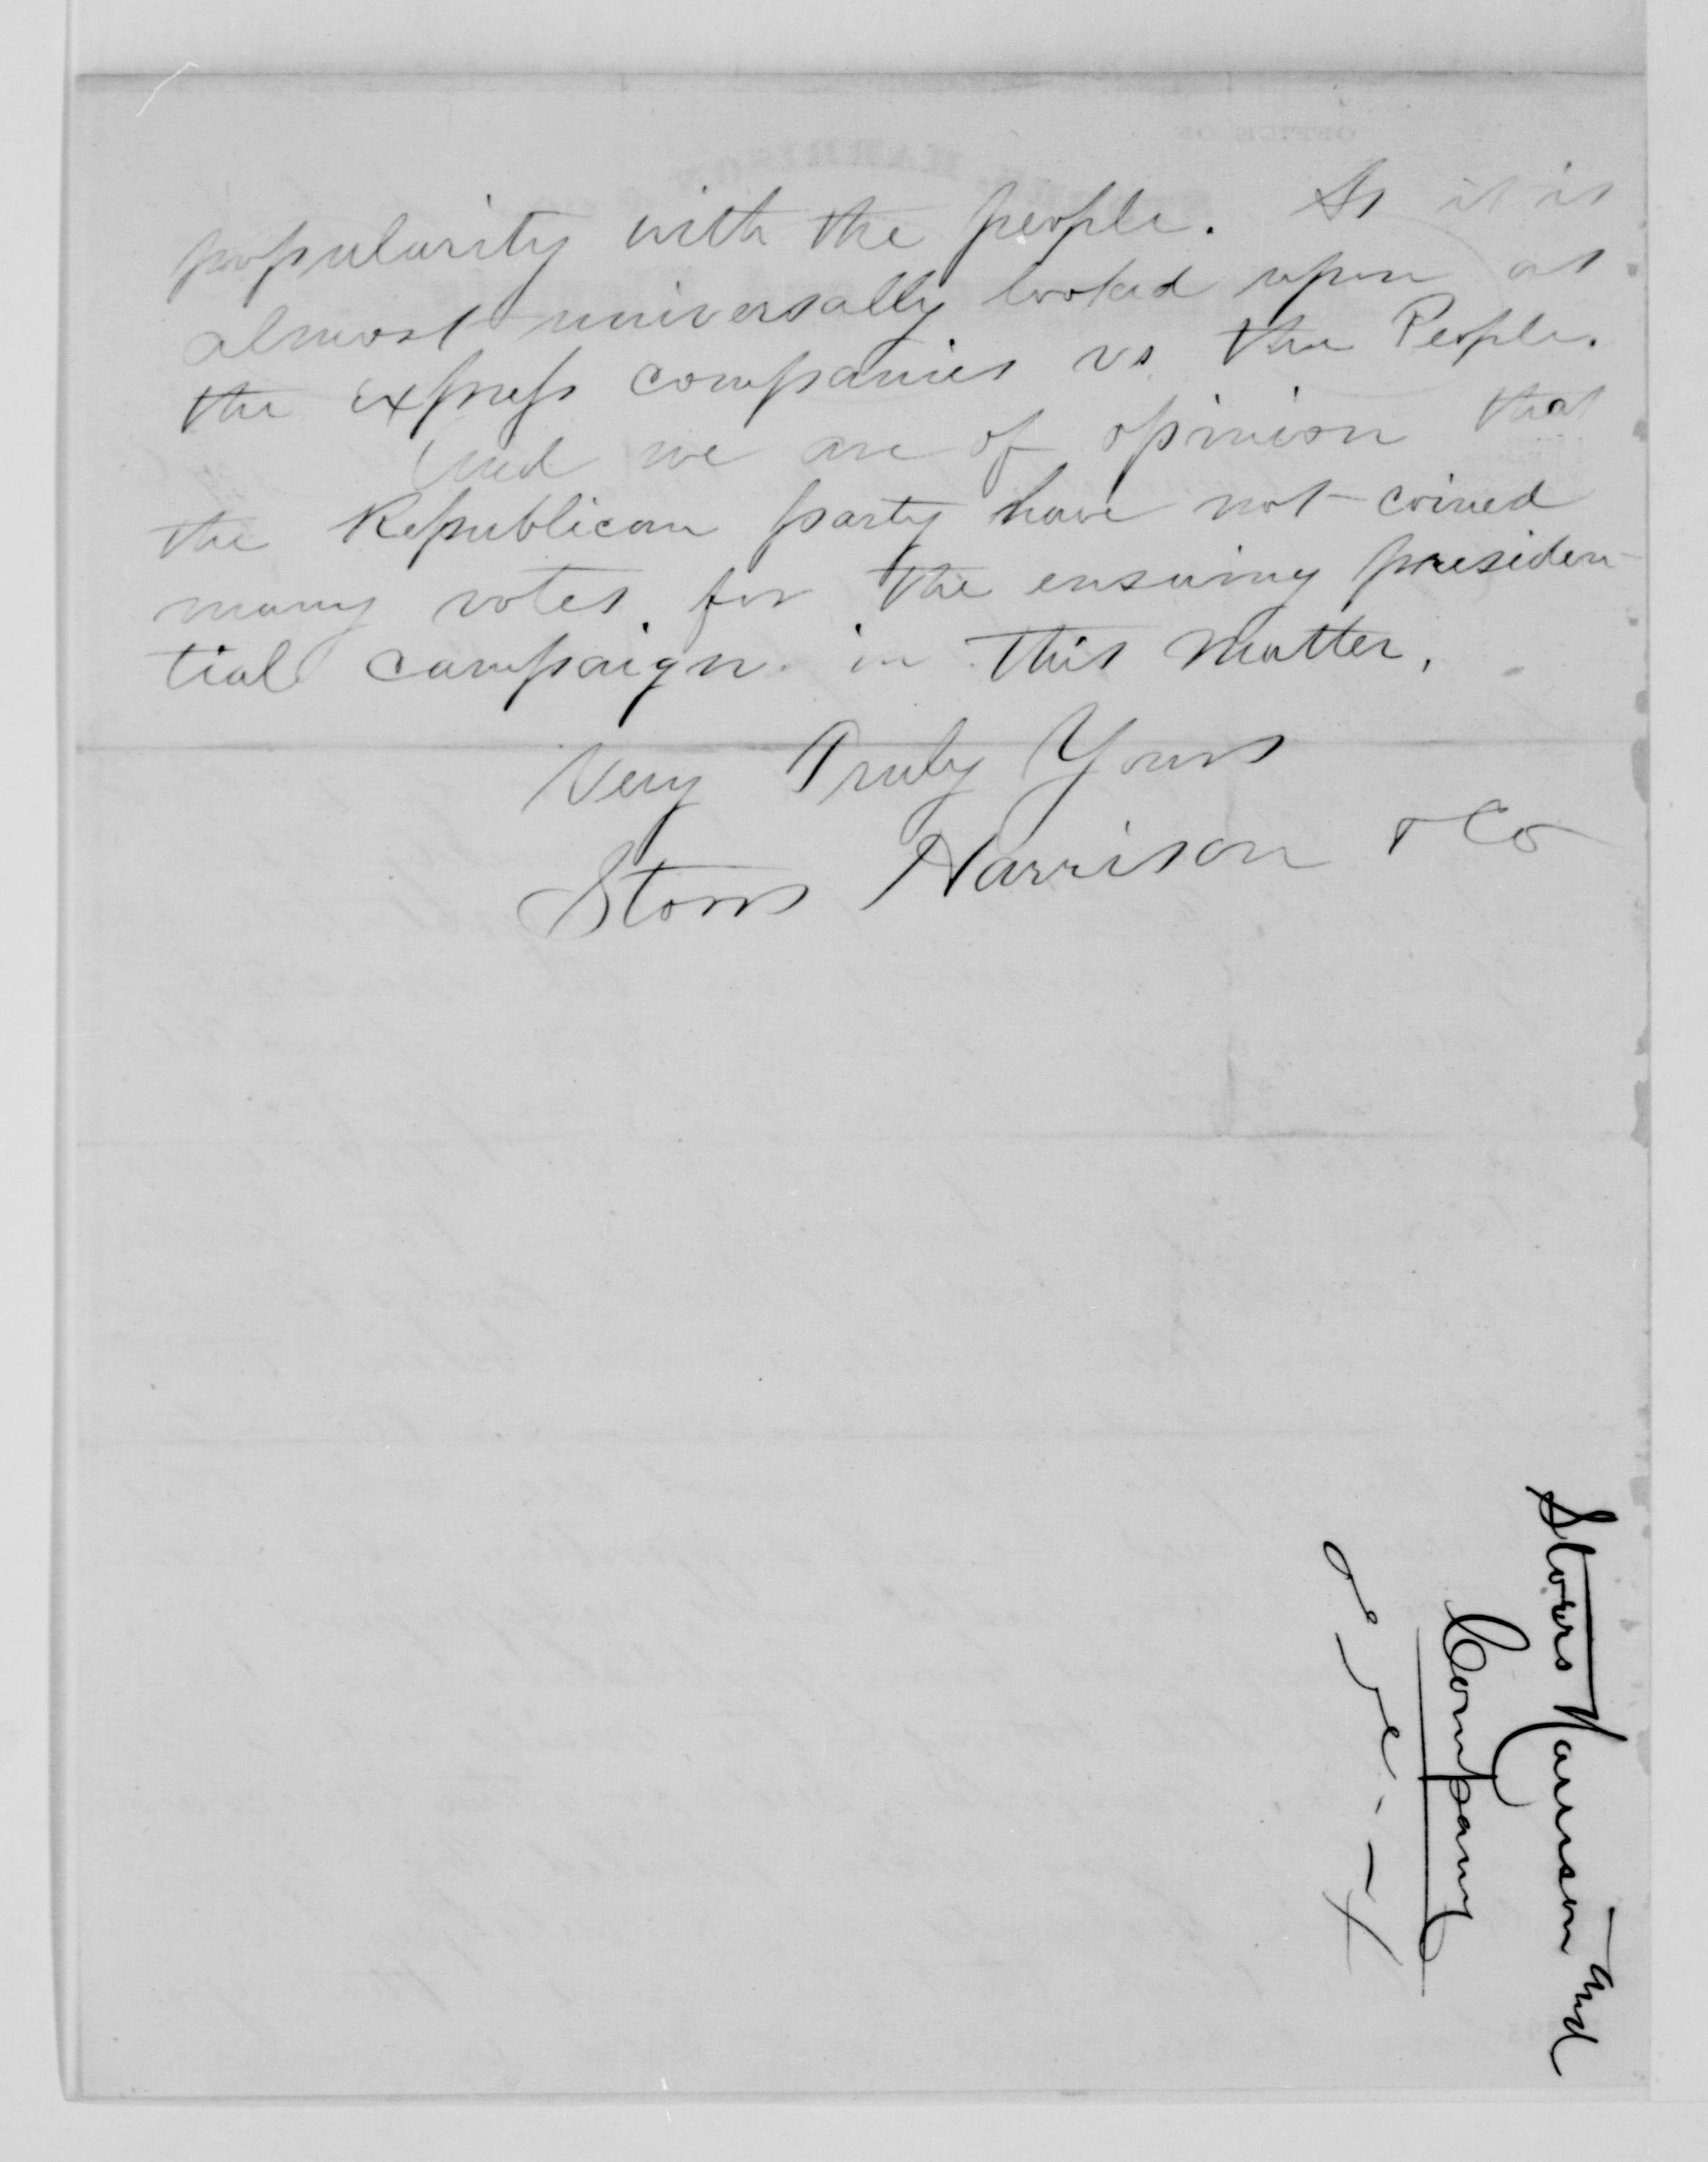 popularity with the people. As it is
almost universally looked upon as
the express companies vs the People.
And we are of opinion that
the Republican party have not coined
many votes for the ensuing presiden-
tial campaign in this matter.
Very Truly Yours
Storrs Harrison & Co
Storrs Harrison and
Company